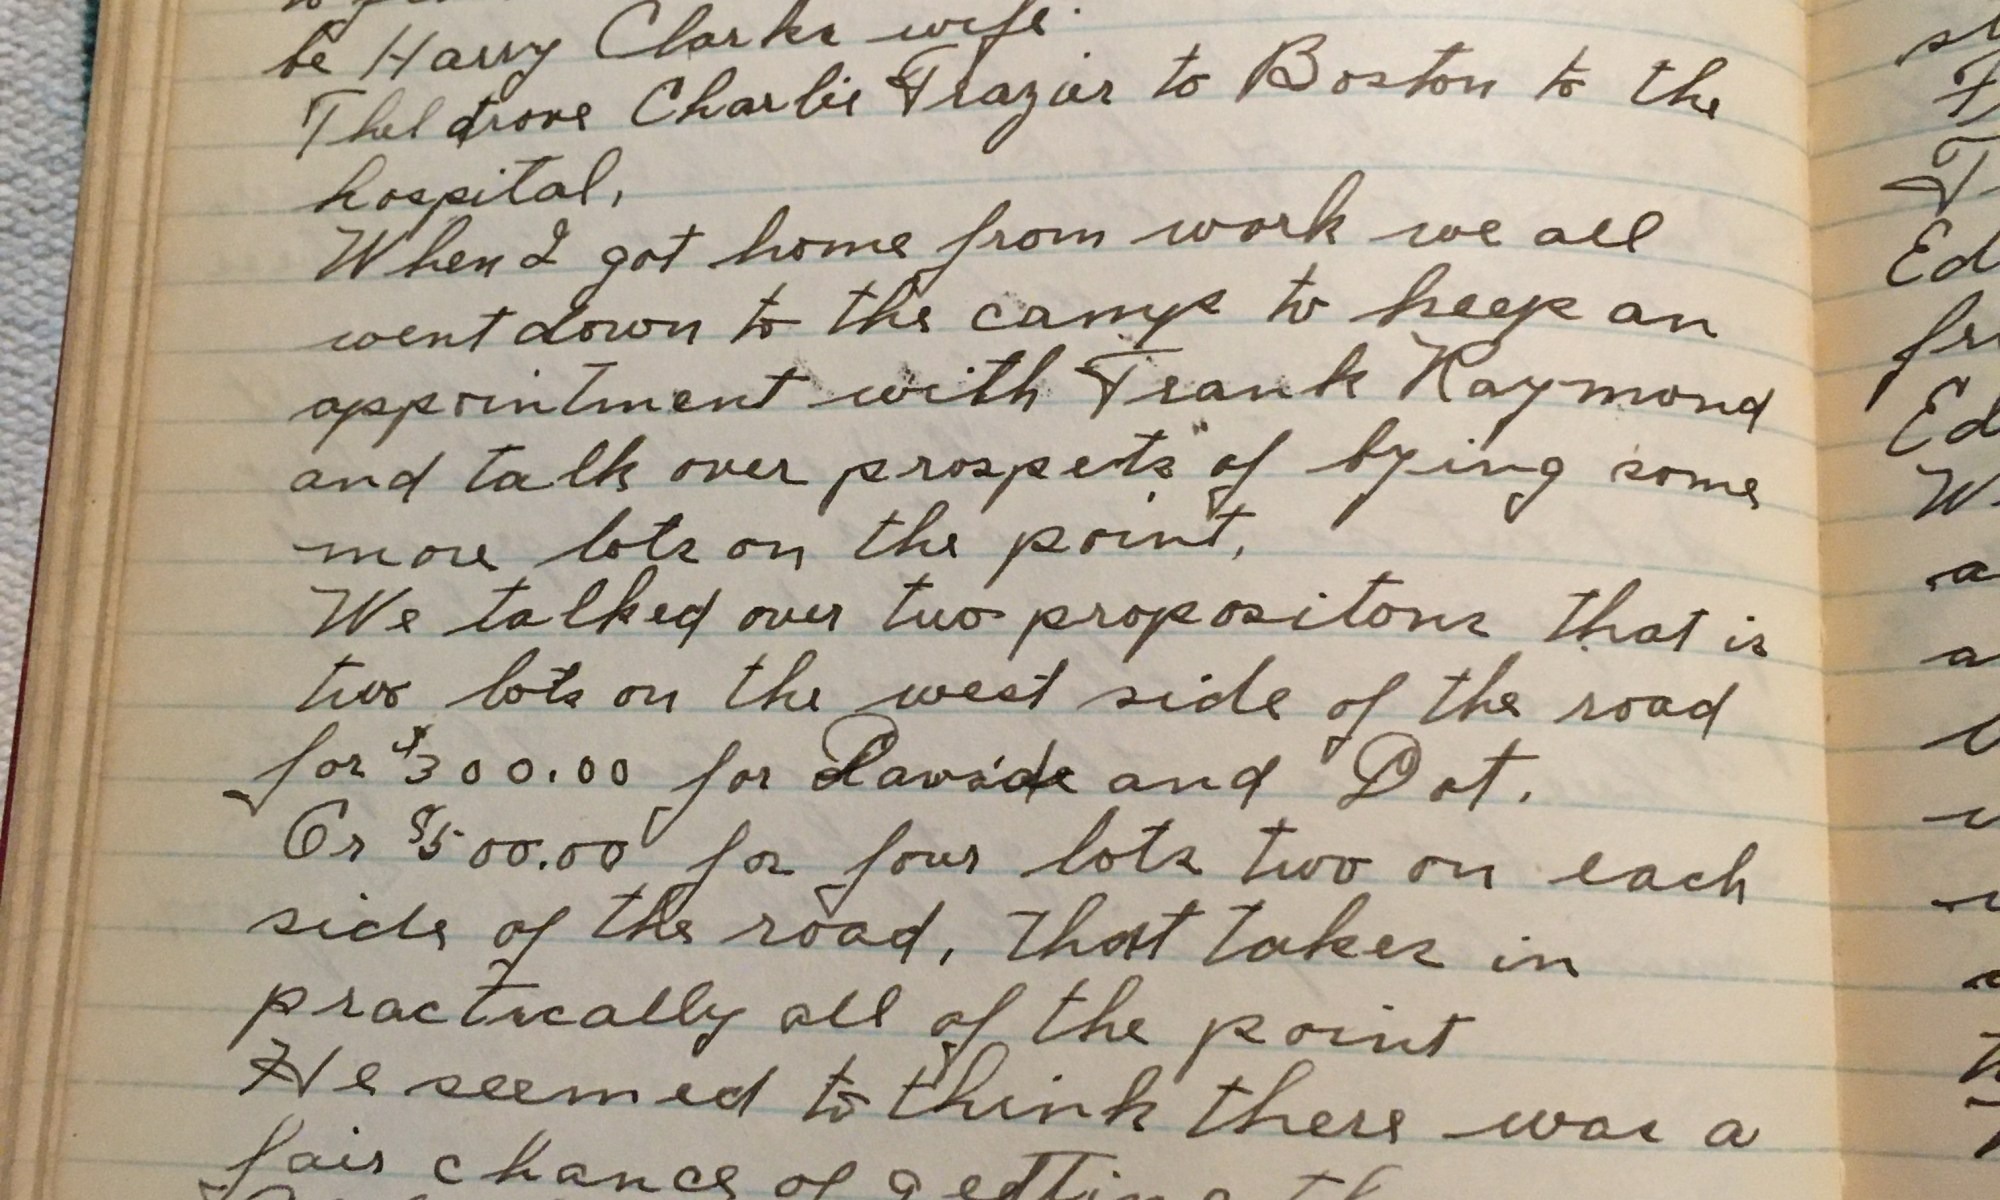 be Harry Clarks wife.
Thel drove Charlie Frazier to Boston to the
hospital.
When I got home from work we all
went down to the camp to keep an
appointment with Frank Raymond
and talk over prospects of bying some
more lots on the point,
We talked over two propositons that is
two lots on the west side of the road
for $300.00 for and Dot.
Or $500.00 for four lots two on each
side of the road, that takes in
practically all of the point
He seemed to think there was a
fair chance of getting
Ed
Ed